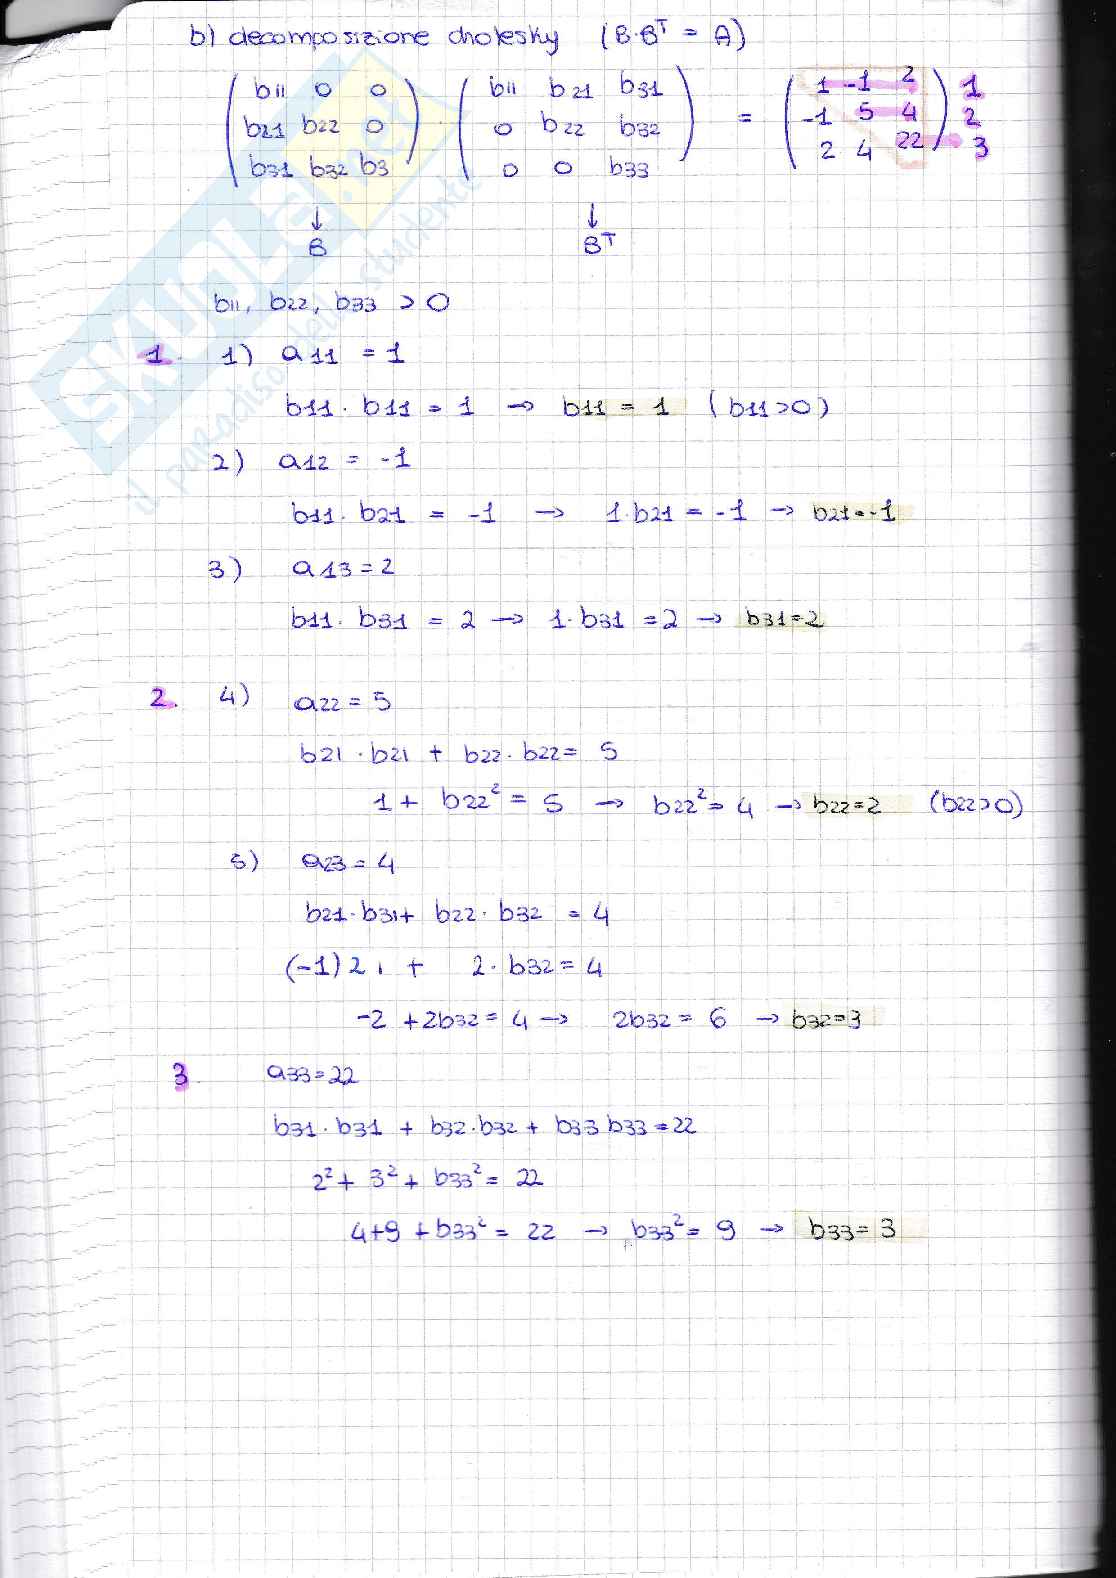 b) decomposizione cholesky (B·Bᵀ = A)
b11 0 0 b11 b21 b31 1 -1 2 1
b21 b22 0 · 0 b22 b32 = -1 5 4 2
b31 b32 b3 0 0 b33 2 4 22 3
↓ ↓
B Bᵀ
b11, b22, b33 > 0
1. 1) a11 = 1
b11 · b11 = 1 → b11 = 1 (b11>0)
2) a12 = -1
b11 · b21 = -1 → 1·b21 = -1 → b21=-1
3) a13=2
b11 · b31 = 2 → 1·b31 =2 → b31=2
2. 4) a22=5
b21 ·b21 + b22·b22= 5
1 + b22² = 5 → b22²= 4 → b22=2 (b22>0)
5) a23=4
b21·b31+ b22·b32 = 4
(-1)2 + 2·b32=4
-2 +2b32= 4 → 2b32= 6 → b32=3
3. a33=22
b31·b31 + b32·b32 + b33 b33=22
2²+ 3²+ b33²= 22
4+9 +b33²= 22 → b33²= 9 → b33= 3
SKUOLA.net
il paradiso dello studente